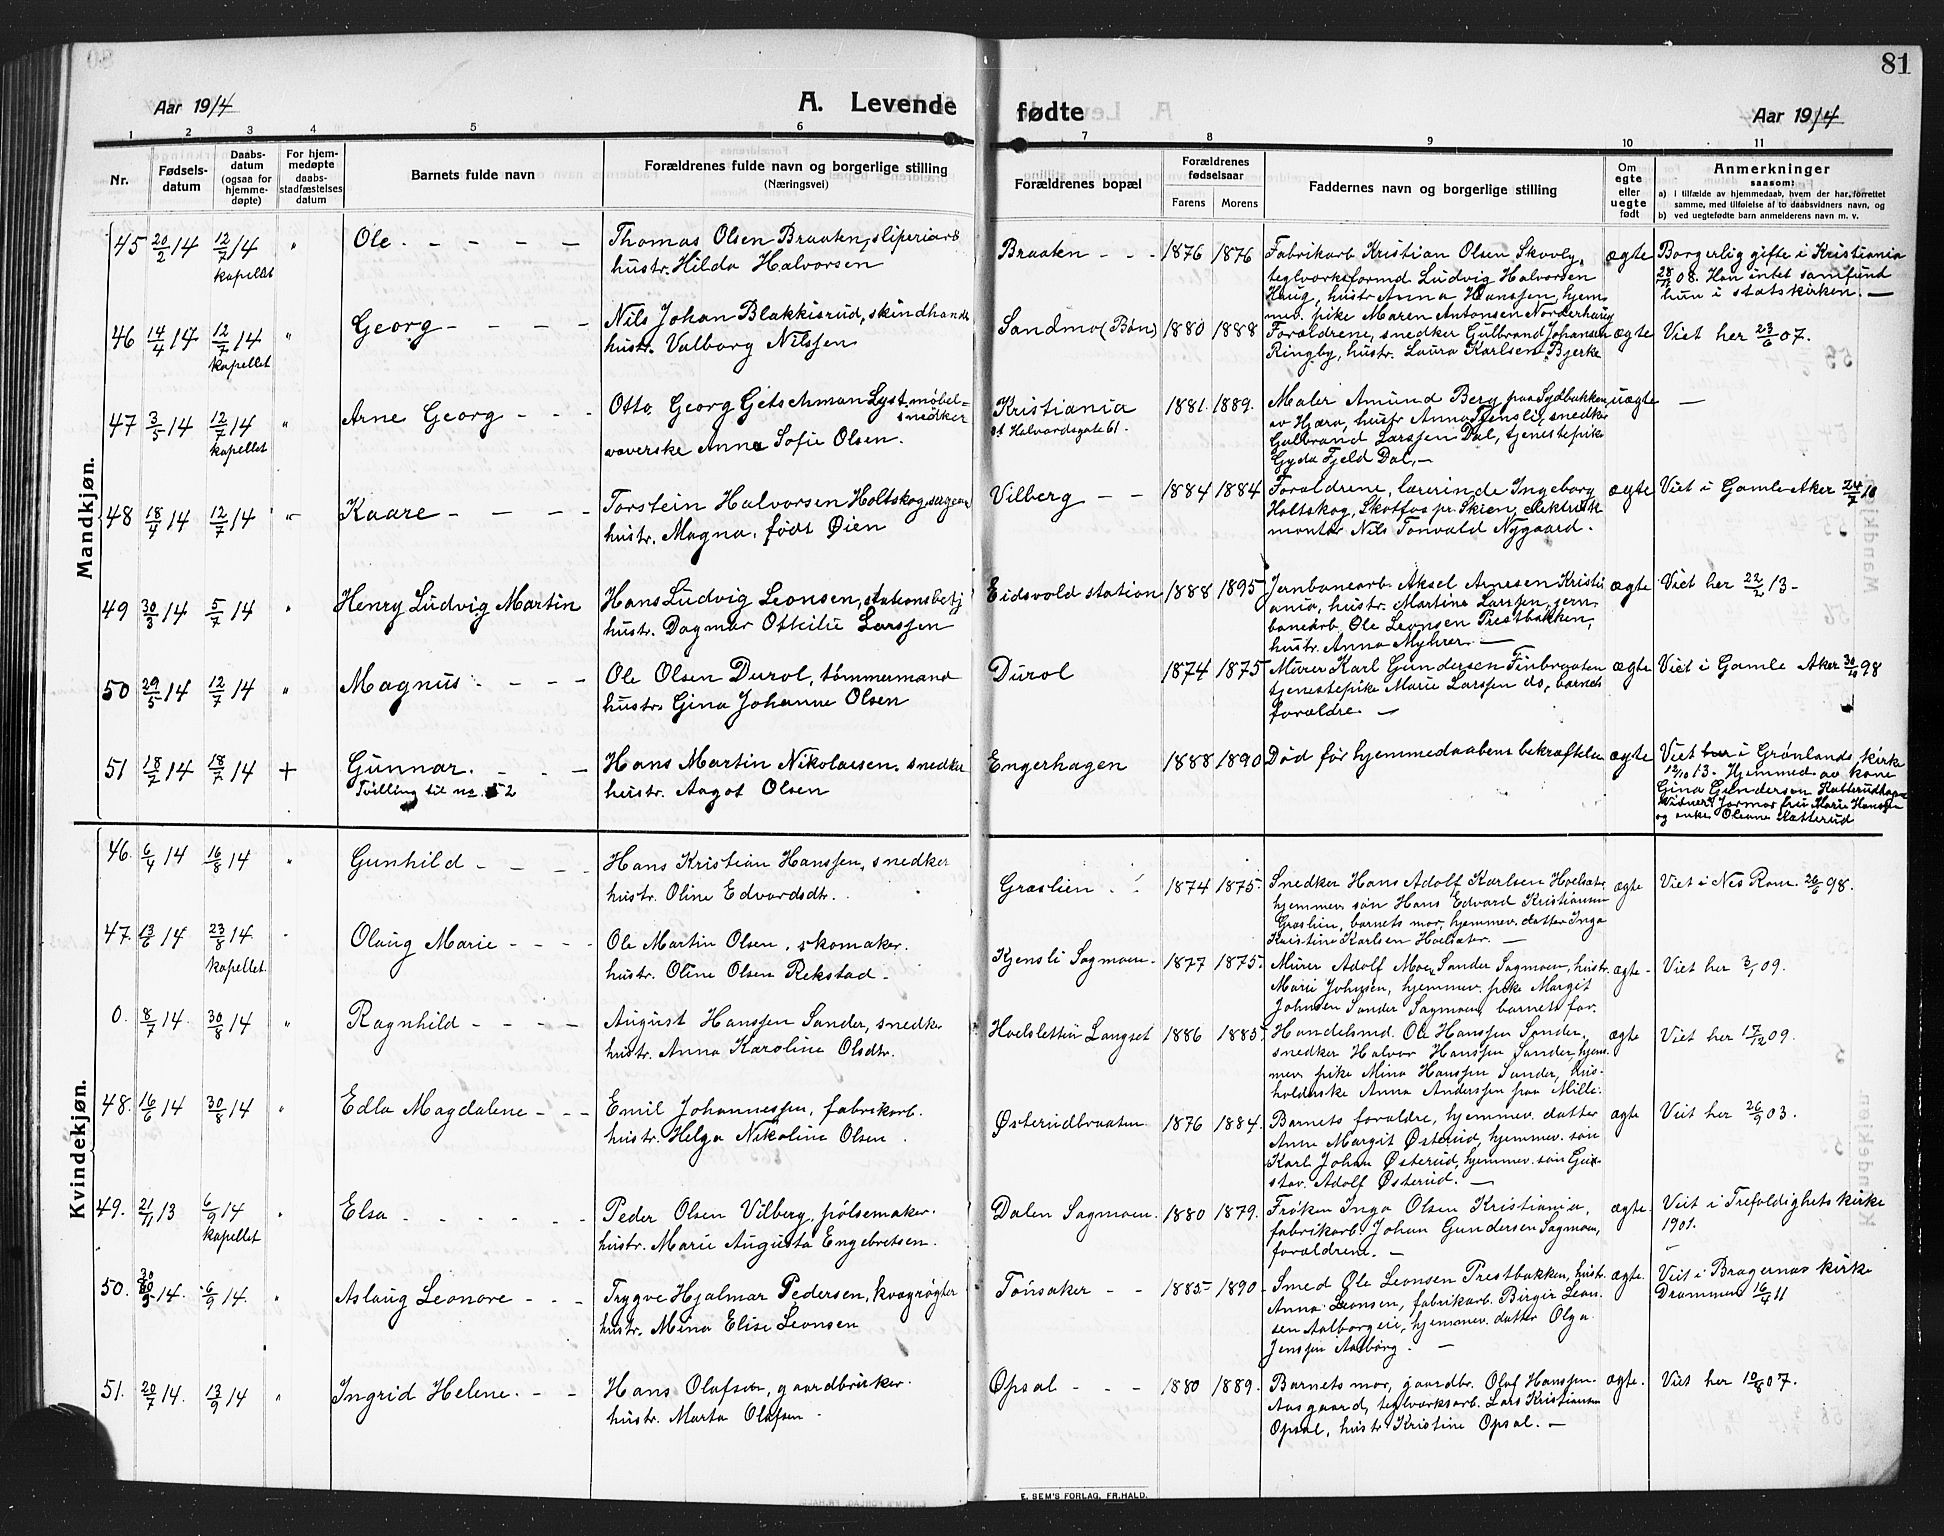 81
Aar 1914 A. Levende fødte Aar 1914
1 2 3 4 5 6 7 8 9 10 11
Nr. Fødsels-datum Daabs-datum (ogsaa for hjemme-døpte) For hjem-medøpte daabs-stadfæstelses datum Barnets fulde navn Forældrenes fulde navn og borgerlige stilling (Næringsvei) Forældrenes bopæl Forældrenes fødselsaar Farens Morens Faddernes navn og borgerlige stilling Om egte eller uegte født Anmerkninger saasom:
a) i tilfælde av hjemmedaab, hvem der har forrettet samme, med tilføielse af to daabsvidners navn, og
b) ved uegtefødte barn anmelderens navn m. v.
Mandkjøn.
45 20/2 14 12/7 14 kapellet " Ole - - - - -
Thomas Olsen Braaten, sliperiarb
hustr. Hilda Halvorsen
Braaten - - - 1876 1876
Fabrikarb Kristian Olsen Skovly,
teglverksformd Ludvig Halvorsen
Haug, hustr Anna Hanssen, hjem-
mev. pike Maren Antonsen Norderhaug
ægte
Borgerlig gifte i Kristiania
28/11 08. Han intet samfund
hun i statskirken. -
46 14/4 14 12/7 14 kapellet " Georg - - - -
Nils Johan Blakkisrud, skindhandl
hustr. Valborg Nilssen
Sandmo (Bøn) 1880 1888
Forældrene, snedker Gulbrand Johansen
Ringby, hustr. Laura Karlsen Bjerke
ægte Viet her 23/6 07.
47 3/5 14 12/7 14 kapellet " Arne Georg - - -
Otto Georg Getschman Lyst, møbel-
snedker
væverske Anna Sofie Olsen.
Kristiania
St Halvardsgate 61.
1881. 1889.
Maler Amund Berg paa Sydbakken
av Hjæra, hustr Anna Tjensli, snedker
Gulbrand Larssen Dal, tjenestepike
Gyda Fjeld Dal, -
uægte -
48 18/4 14 12/7 14 " Kaare - - - -
Torstein Halvorsen Holtskog,
hustr. Magna, født Øien
Vilberg - - 1884 1884
Forældrene, lærerinde Ingeborg
Holtskog, Skotfos pr. Skien, elektrisk
montør Nils Torvald Nygaard.
ægte Viet i Gamle Aker 24/7 10
49 30/3 14 5/7 14 " Henry Ludvig Martin
Hans Ludvig Leonsen, stationsbetj
hustr. Dagmar Ottilie Larssen
Eidsvold station 1888 1895
Jernbanearb. Aksel Arnesen Kristi
ania, hustr. Martine Larssen, jern-
banearb. Ole Leonsen Prestbakken,
hustr. Anna Myhrer. -
ægte Viet her 22/2 13 -
50 29/5 14 12/7 14 " Magnus - - - -
Ole Olsen Durol, tømmermand
hustr. Gina Johanne Olsen
Durol 1874 1875
Murer Karl Gundersen Finbraaten
tjenestepike Marie Larssen ds, barnets
forældre. -
ægte Viet i Gamle Aker 30/10 98
51 18/7 14 18/7 14 + Gunnar. - - -
Tvilling til no. 52
Hans Martin Nikolaisen, snedker
hustr. Aagot Olsen
Engerhagen 1888 1890
Død før hjemmedaabens bekræftelse
ægte
Viet her i Grønlands kirke
12/10 13. Hjemmed. av kone
Gina Gundersen
Vidner: Jormor fru Marie Hanssen
og enke Oleane Sletterud
Kvindekjøn.
46. 6/4 14 16/8 14 " Gunhild - - -
Hans Kristian Hanssen, snedker
hustr. Oline Edvardsdtr.
Græslien - - 1874 1875.
Snedker Hans Adolf Karlsen Hoelsæter
hjemmev. søn Hans Edvard Kristiansen
Græslien, barnets mor, hjemmev. datter Inga
Kristine Karlsen Hoelsæter. -
ægte Viet i Nes Rom. 26/6 98.
47. 13/6 14 23/8 14 kapellet. " Olaug Marie - - - -
Ole Martin Olsen, skomaker.
hustr. Oline Olsen Rekstad -
Kjensli Sagmoen. 1877 1875.
Murer Adolf Moe, Sander Sagmoen, hustr.
Marie Johnsen, hjemmev. pike Margit
Johnsen Sander Sagmoen, barnets far.
ægte - Viet her 3/1 09.
0. 8/7 14. 30/8 14 " Ragnhild - - - -
August Hanssen Sander, snedker
hustr. Anna Karoline Olsdtr.
Hoelsletten Langset 1886 1885.
Handelsmd. Ole Hanssen Sander,
snedker Halvor Hanssen Sander, hjem-
mev. pike Mina Hanssen Sander, hus-
holderske Anna Anderssen paa Mille.
ægte Viet her 17/12 09.
48. 16/6 14 30/8 14 " Edla Magdalene - - -
Emil Johannessen, fabrikarb.
hustr. Helga Nikoline Olsen
Østerudbraaten 1876 1884.
Barnets forældre, hjemmev. datter
Anne Margit Østerud, hjemmev. søn
Karl Johan Østerud, hjemmev. søn Gus-
tav Adolf Østerud. -
ægte Viet her 26/9 03.
49. 21/11 13 6/9 14 kapellet " Elsa - - - - - -
Peder Olsen Vilberg, pølsemaker.
hustr. Marie Augusta Engebretsen.
Dalen Sagmoen. 1880 1879.
Frøken Inga Olsen Kristiania,
fabrikarb. Johan Gundersen Sagmoen,
forældrene. -
ægte
Viet i Trefoldighets kirke
1901.
50. 30/3 14. 6/9 14. " Aslaug Leonore - - -
Trygve Hjalmar Pedersen, kvægrøgter
hustr. Mina Elise Leonsen
Tønsaker - - 1885- 1890
Smed Ole Leonsen Prestbakken, hustr.
Anna Leonsen, fabrikarb. Birger Leon-
sen Aalborgeie, hjemmev. datter Olga
Jenssen Aalborg. -
ægte.
Viet i Bragernæs kirke
Drammen 16/4 11
51. 20/7 14. 13/9 14 " Ingrid Helene. - -
Hans Olafsen, gaardbruker.
hustr. Marta Olafsen -
Opsal - - - 1880 1889.
Barnets mor, gaardbr. Olaf Hanssen
Aasgaard, teglverksarb. Lars Kristiansen
Opsal, hustr Kristine Opsal. -
ægte. Viet her 10/8 07.
E. SEM'S FORLAG, FR.HALD.